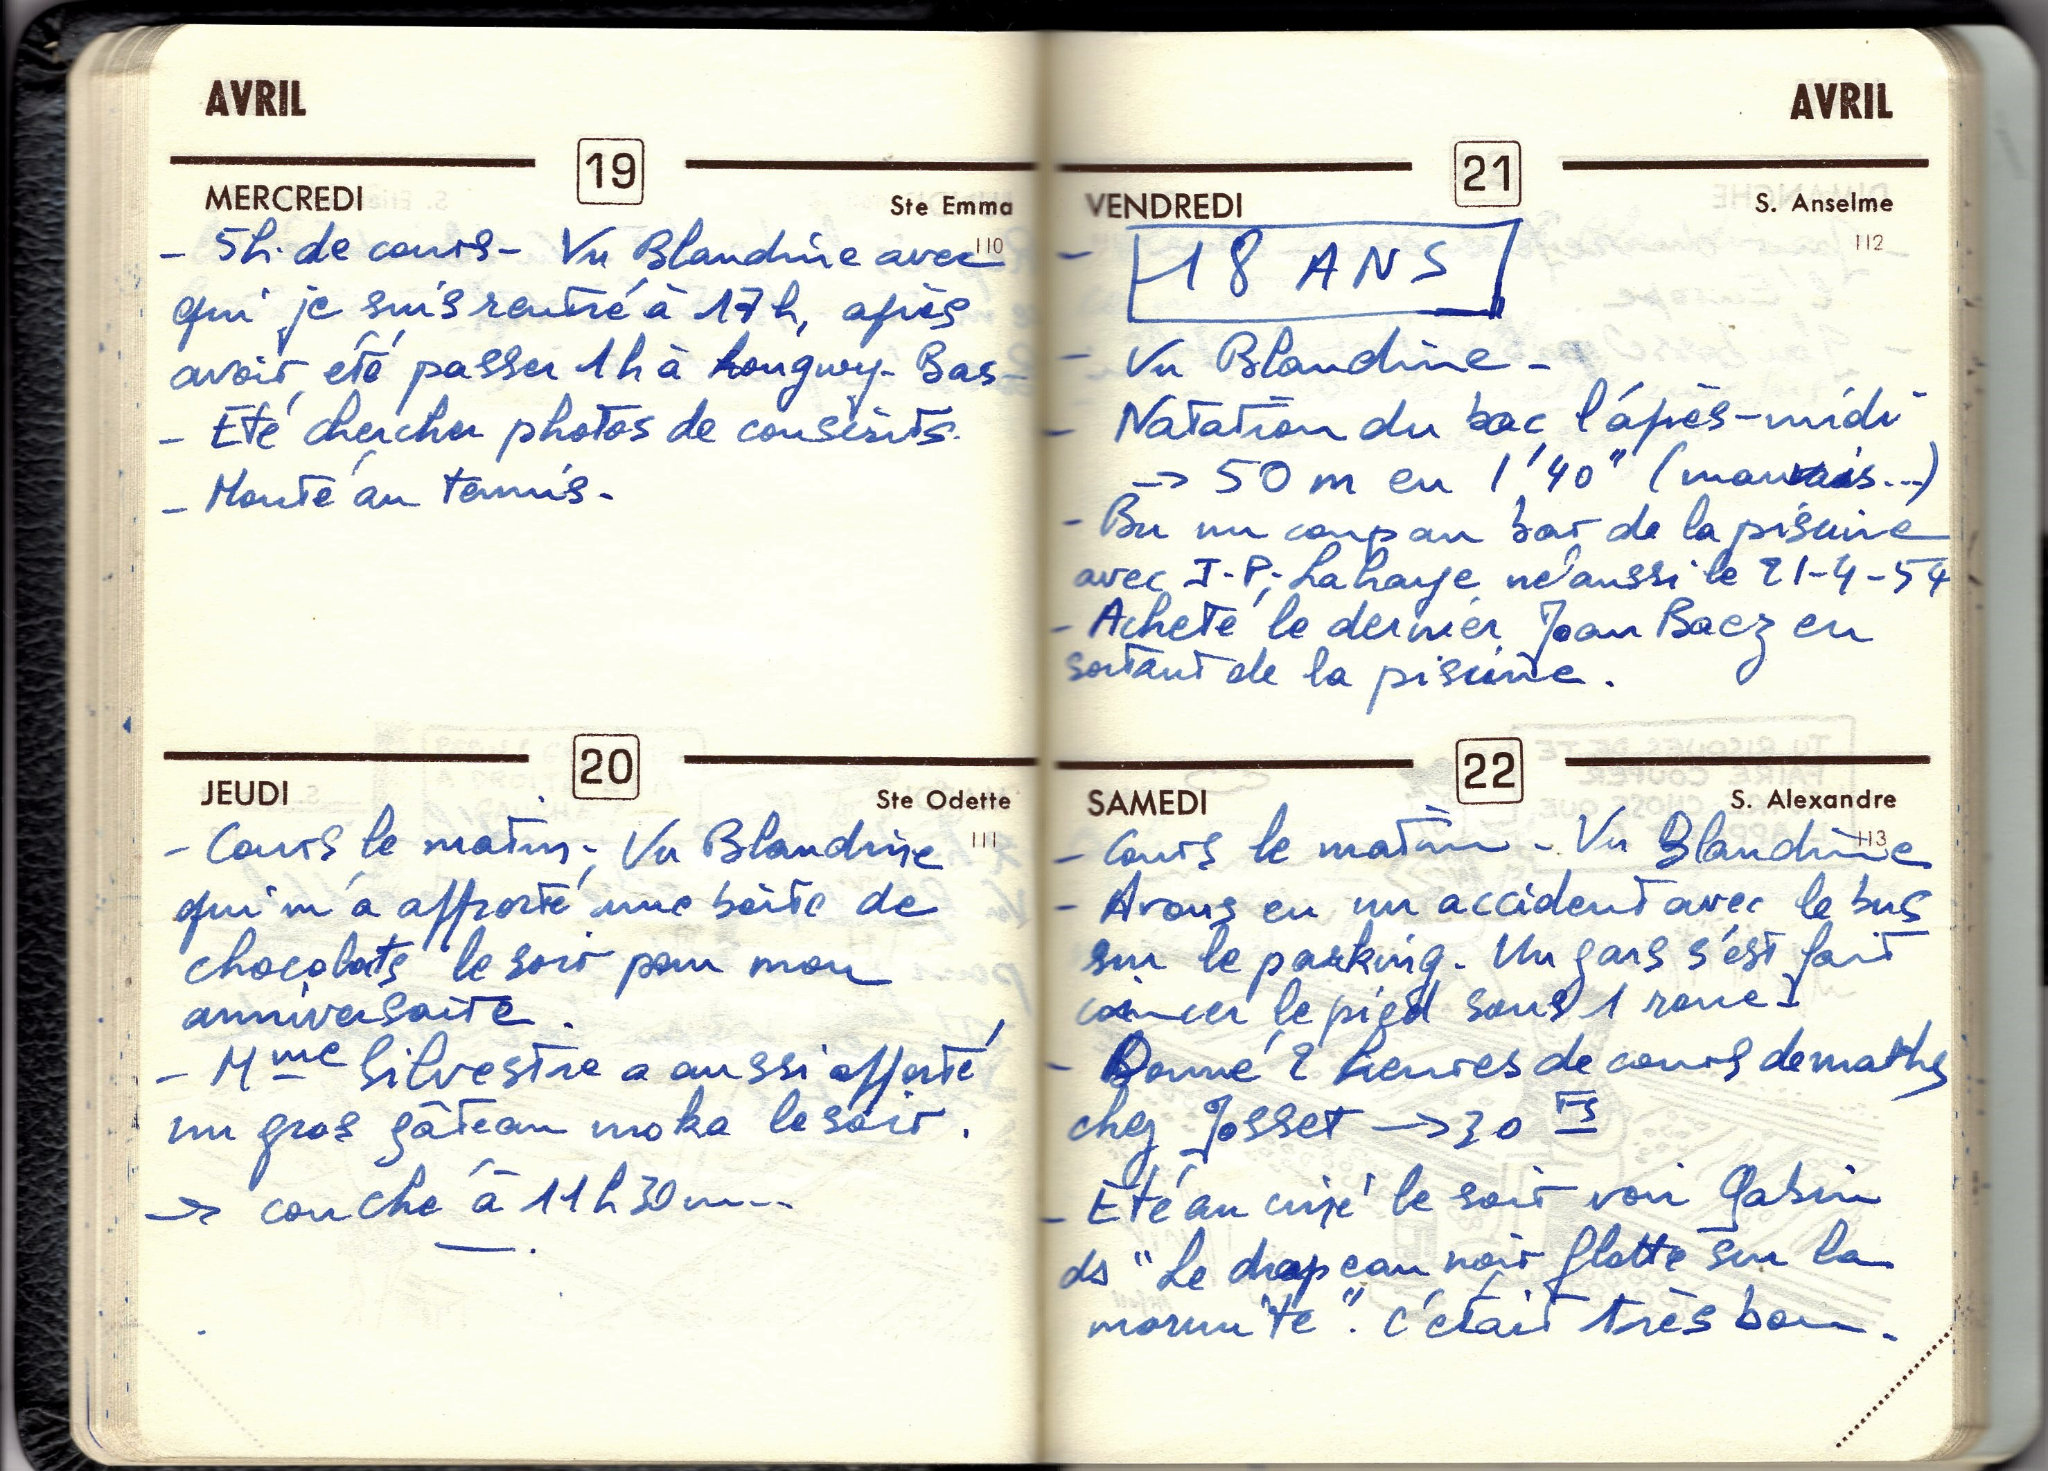 AVRIL
19
MERCREDI
Ste Emma
110
- 5h. de cours - Vu Blandine avec
qui je suis rentré à 17h, après
avoir été passer 1h à Longwy-Bas -
- Eté chercher photos de conscrits.
- Monté au tennis.
20
JEUDI
Ste Odette
111
- Cours le matin - Vu Blandine
qui m'a apporté une boîte de
chocolats le soir pour mon
anniversaire.
- Mme Silvestre a aussi apporté
un gros gâteau moka le soir.
→ couché à 11h30m...
AVRIL
21
VENDREDI
S. Anselme
112
- 18 ANS
- Vu Blandine -
- Natation du bac l'après-midi
→ 50 m en 1'40" (mauvais...)
- Bu un coup au bar de la piscine
avec J-P. Lahaye né aussi le 21-4-54
- Acheté le dernier Joan Baez en
sortant de la piscine.
22
SAMEDI
S. Alexandre
113
- Cours le matin - Vu Blandine
- Avons eu un accident avec le bus
sur le parking. Un gars s'est fait
coincer le pied sous 1 roue -
- Donné 2 heures de cours de maths
chez Josset → 30 Fs
- Eté au ciné le soir voir Gabin
ds "Le drapeau noir flotte sur la
marmite". C'était très bon.